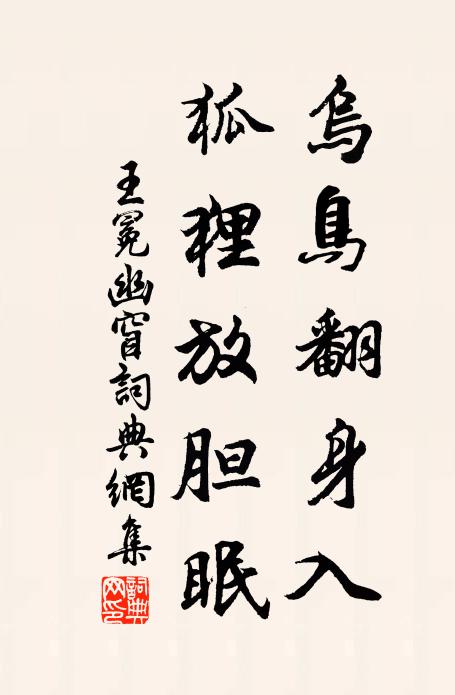 烏鳥翻身入
狐狸放胆眠
王冕幽窅詞典網集
詞典網印